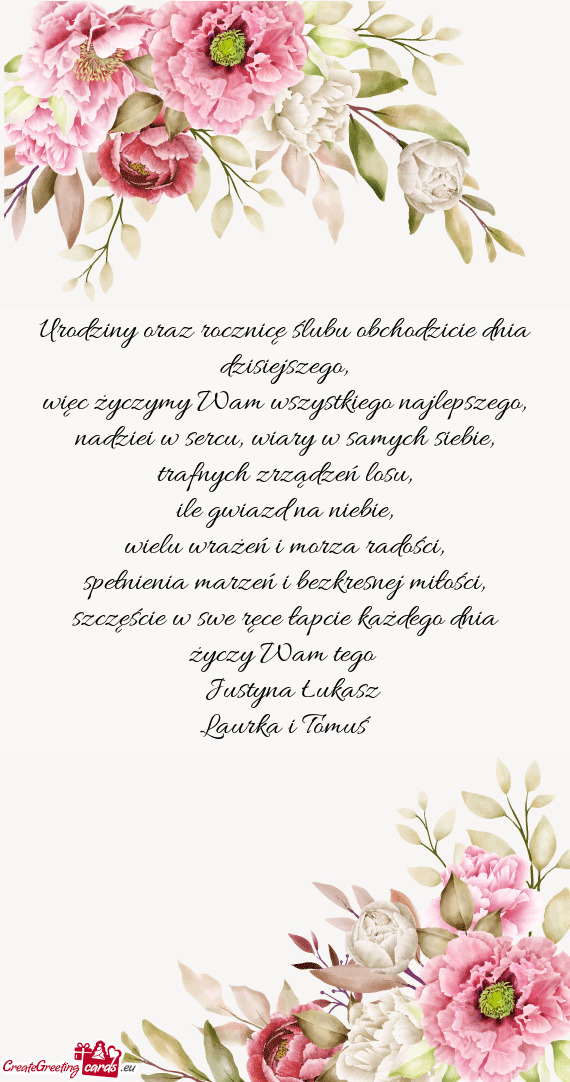 Urodziny oraz rocznicę ślubu obchodzicie dnia
dzisiejszego,
więc życzymy Wam wszystkiego najlepszego,
nadziei w sercu, wiary w samych siebie,
trafnych zrządzeń losu,
ile gwiazd na niebie,
wielu wrażeń i morza radości,
spełnienia marzeń i bezkresnej miłości,
szczęście w swe ręce łapcie każdego dnia
życzy Wam tego
Justyna Łukasz
Laurka i Tomuś
CreateGreeting cards .eu